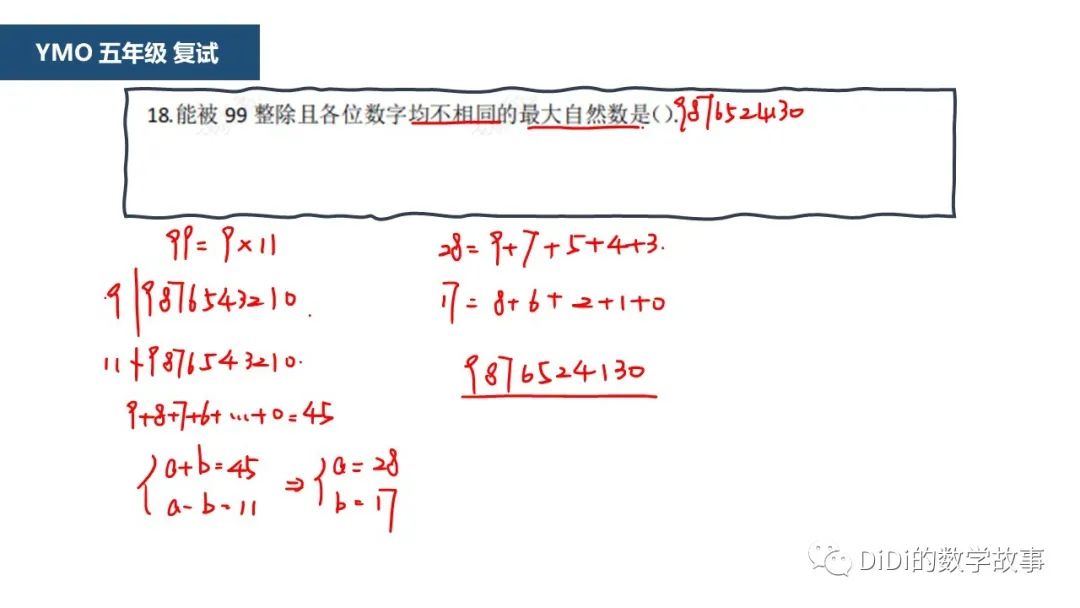 YMO 五年级 复试
18.能被 99 整除且各位数字均不相同的最大自然数是(). 9876524130
99 = 9 × 11
9 | 9876543210
11 ∤ 9876543210.
9+8+7+6+…+0=45
{ a+b=45
a-b=11
⇒ { a=28
b=17
28 = 9+7+5+4+3.
17 = 8+6+2+1+0
9876524130
DiDi的数学故事